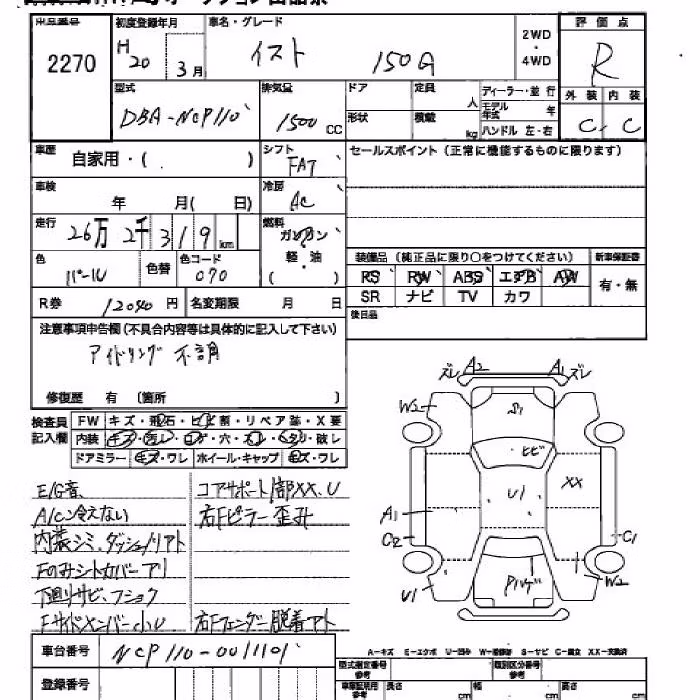 出品番号 初度登録年月 車名・グレード 評価点
2270 H20 3月 イスト 150G 2WD・4WD R
外装 内装
C C
型式 DBA-NCP110 排気量 1500 CC
ドア 定員 人 ディーラー・並行
形状 積載 kg モデル年式 年
ハンドル 左・右
車歴 自家用・( ) シフト FAT セールスポイント (正常に機能するものに限ります)
車検 年 月( 日) 冷房 AC
走行 26万2千319 km 燃料 ガソリン
軽・油
( )
色 パール 色替 色コード 070
装備品 (純正品に限り○をつけてください) 新車保証書
PS PW ABS エアB AW 有・無
SR ナビ TV カワ
R券 12040 円 名変期限 月 日
後日品
注意事項申告欄(不具合内容等は具体的に記入して下さい)
アイドリング 不調
修復歴 有 〔箇所 〕
検査員記入欄 FW キズ・飛石・ヒビ割・リペア跡・X要
内装 キズ・汚レ・コゲ・穴・スレ・ヘタリ・破レ
ドアミラー キズ・ワレ ホイール・キャップ キズ・ワレ
E/G音 コアサポート1部XX、U
A/C冷えない 右Fピラー歪み
内装シミ、ダッシュノリアト
Fのみシートカバーアリ
下廻りサビ、フショク
Fサイドメンバー小U 右Fフェンダー脱着アト
ズレ A2 A1 ズレ
W2
ヒビ
U1 XX
A1
C2 C1
U1 W2
A-キズ E-エクボ U-凹み W-補修跡 S-サビ C-腐食 XX-交換済
車台番号 NCP110-0011101
登録番号
型式指定番号 参考 類別区分番号 参考
長さ cm cm cm